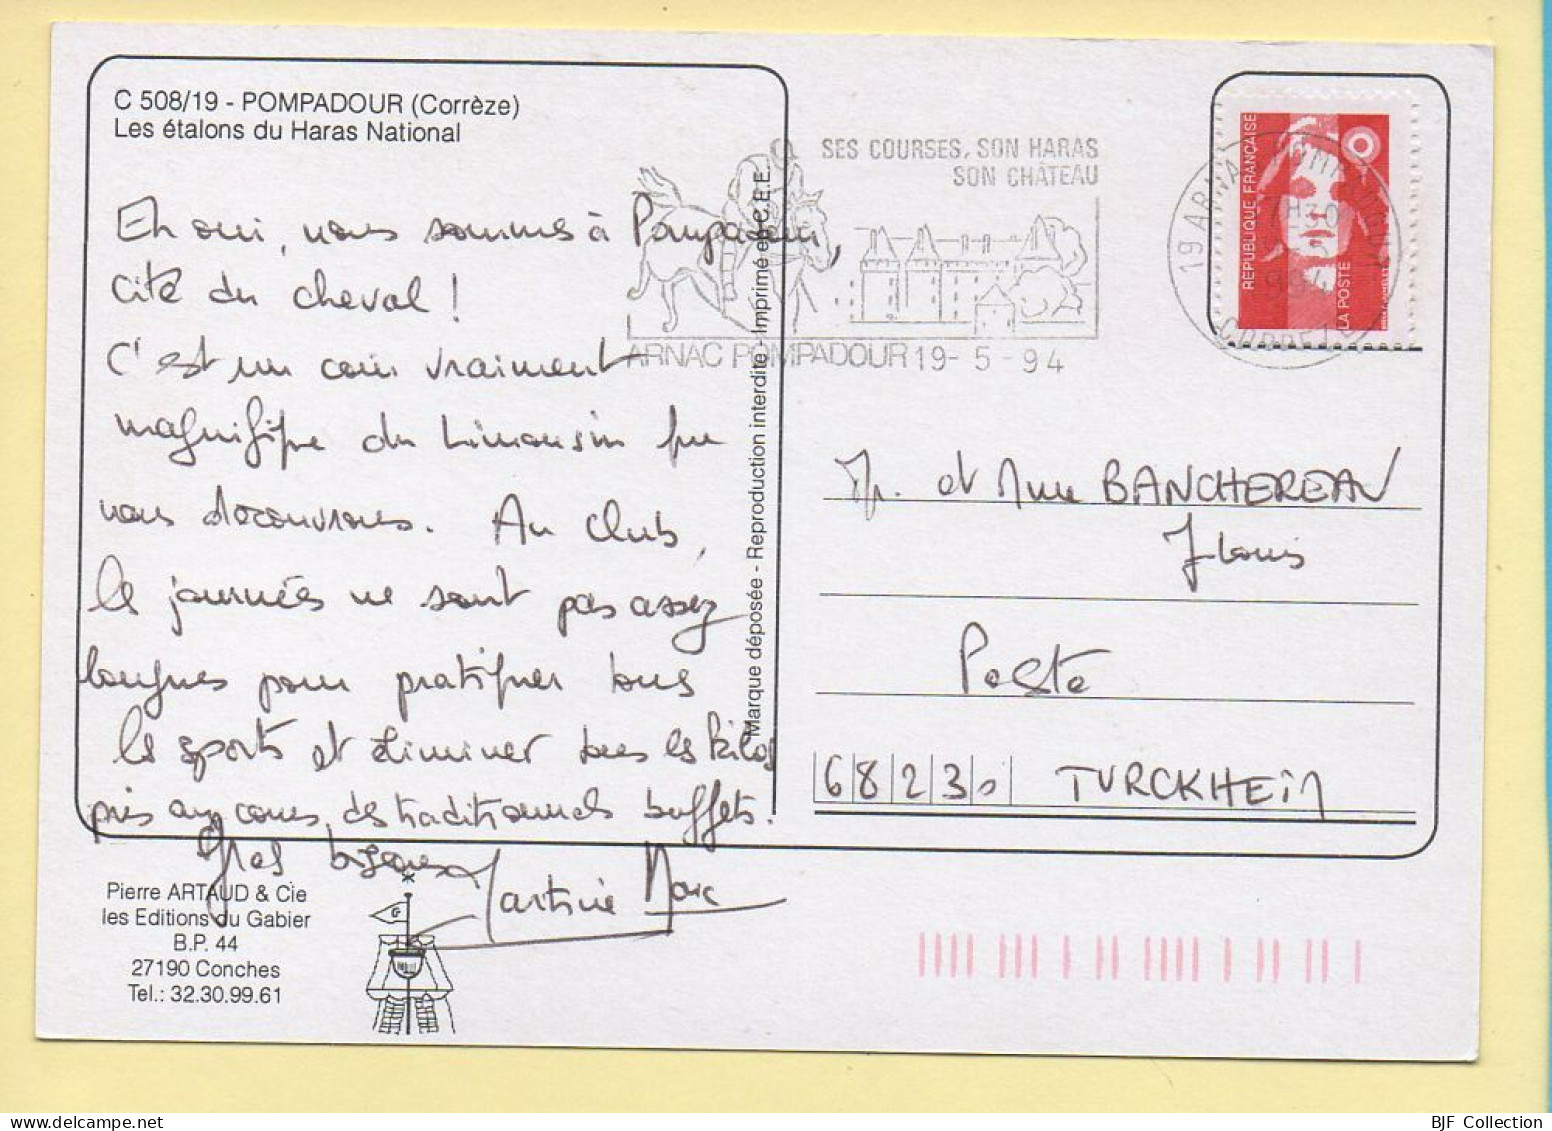 C 508/19 - POMPADOUR (Corrèze)
Les étalons du Haras National
Eh oui, nous sommes à Pompadour,
cité du cheval !
C'est un coin vraiment
magnifique du Limousin que
nous découvrons. Au Club,
les journées ne sont pas assez
longues pour pratiquer tous
les sports et éliminer tous les kilos
pris au cours des traditionnels buffets.
Gros bisous
Martine Marc
Pierre ARTAUD & Cie
les Editions du Gabier
B.P. 44
27190 Conches
Tel.: 32.30.99.61
G
Marque déposée - Reproduction interdite - Imprimé en C.E.E.
SES COURSES, SON HARAS
SON CHÂTEAU
ARNAC POMPADOUR 19-5-94
19 ARNAC POMPADOUR
CORREZE
RÉPUBLIQUE FRANÇAISE
LA POSTE
Mr. et Mme BANCHEREAU
J Louis
Poste
68230 TURCKHEIM
BJF Collection